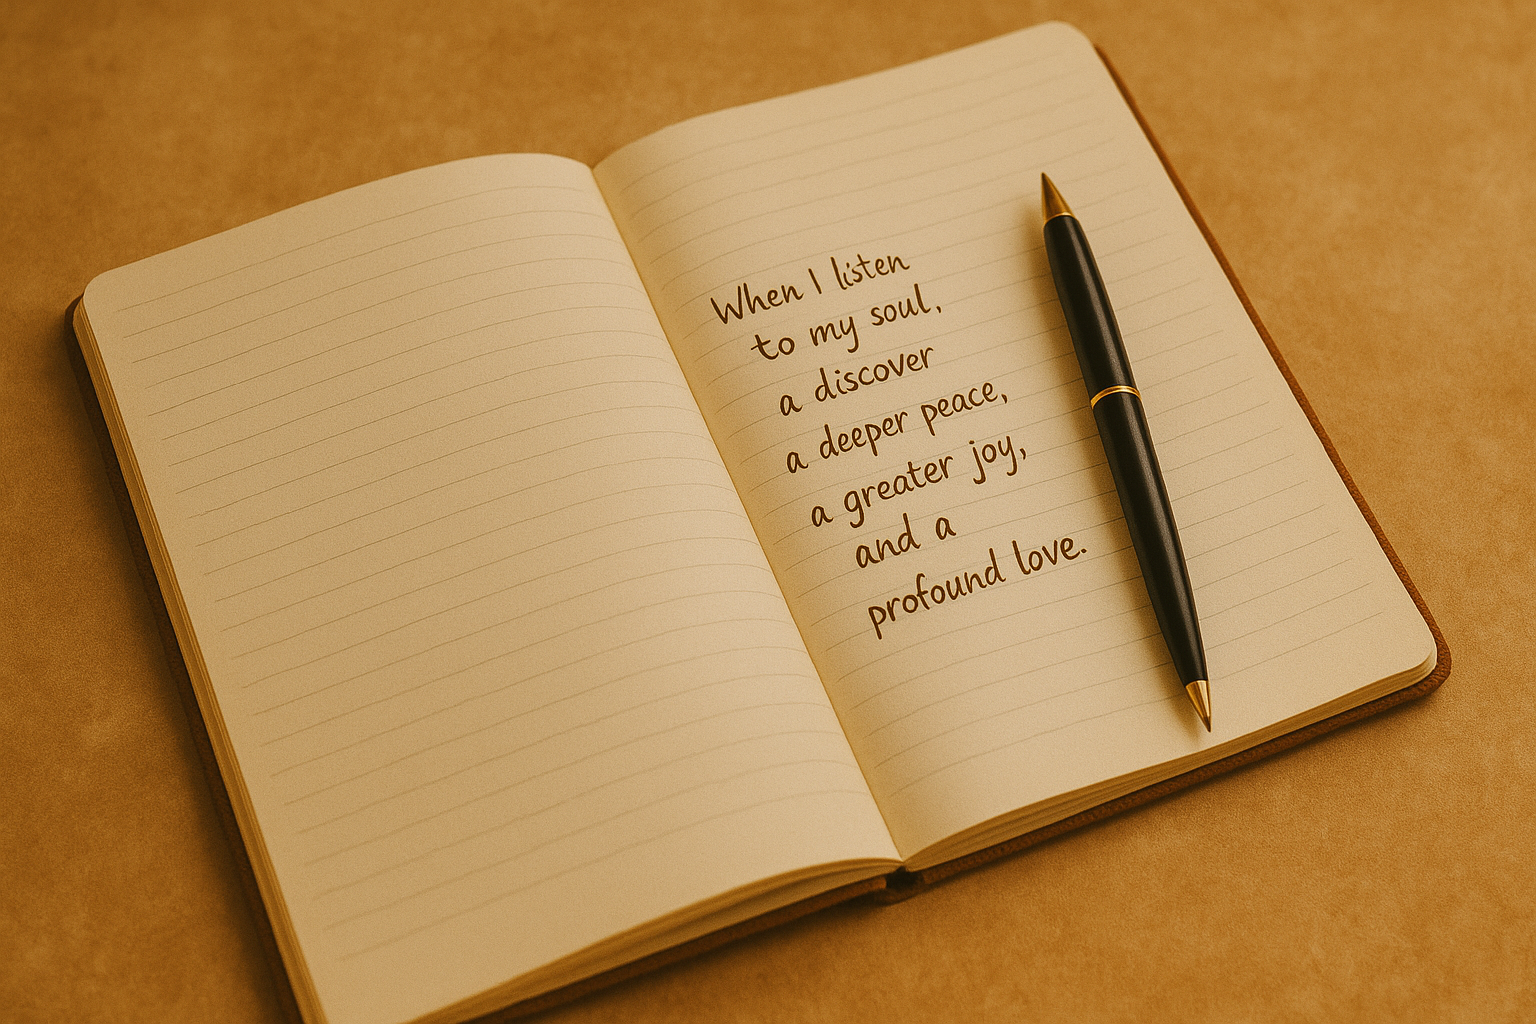 When I listen
to my soul,
a discover
a deeper peace,
a greater joy,
and a
profound love.